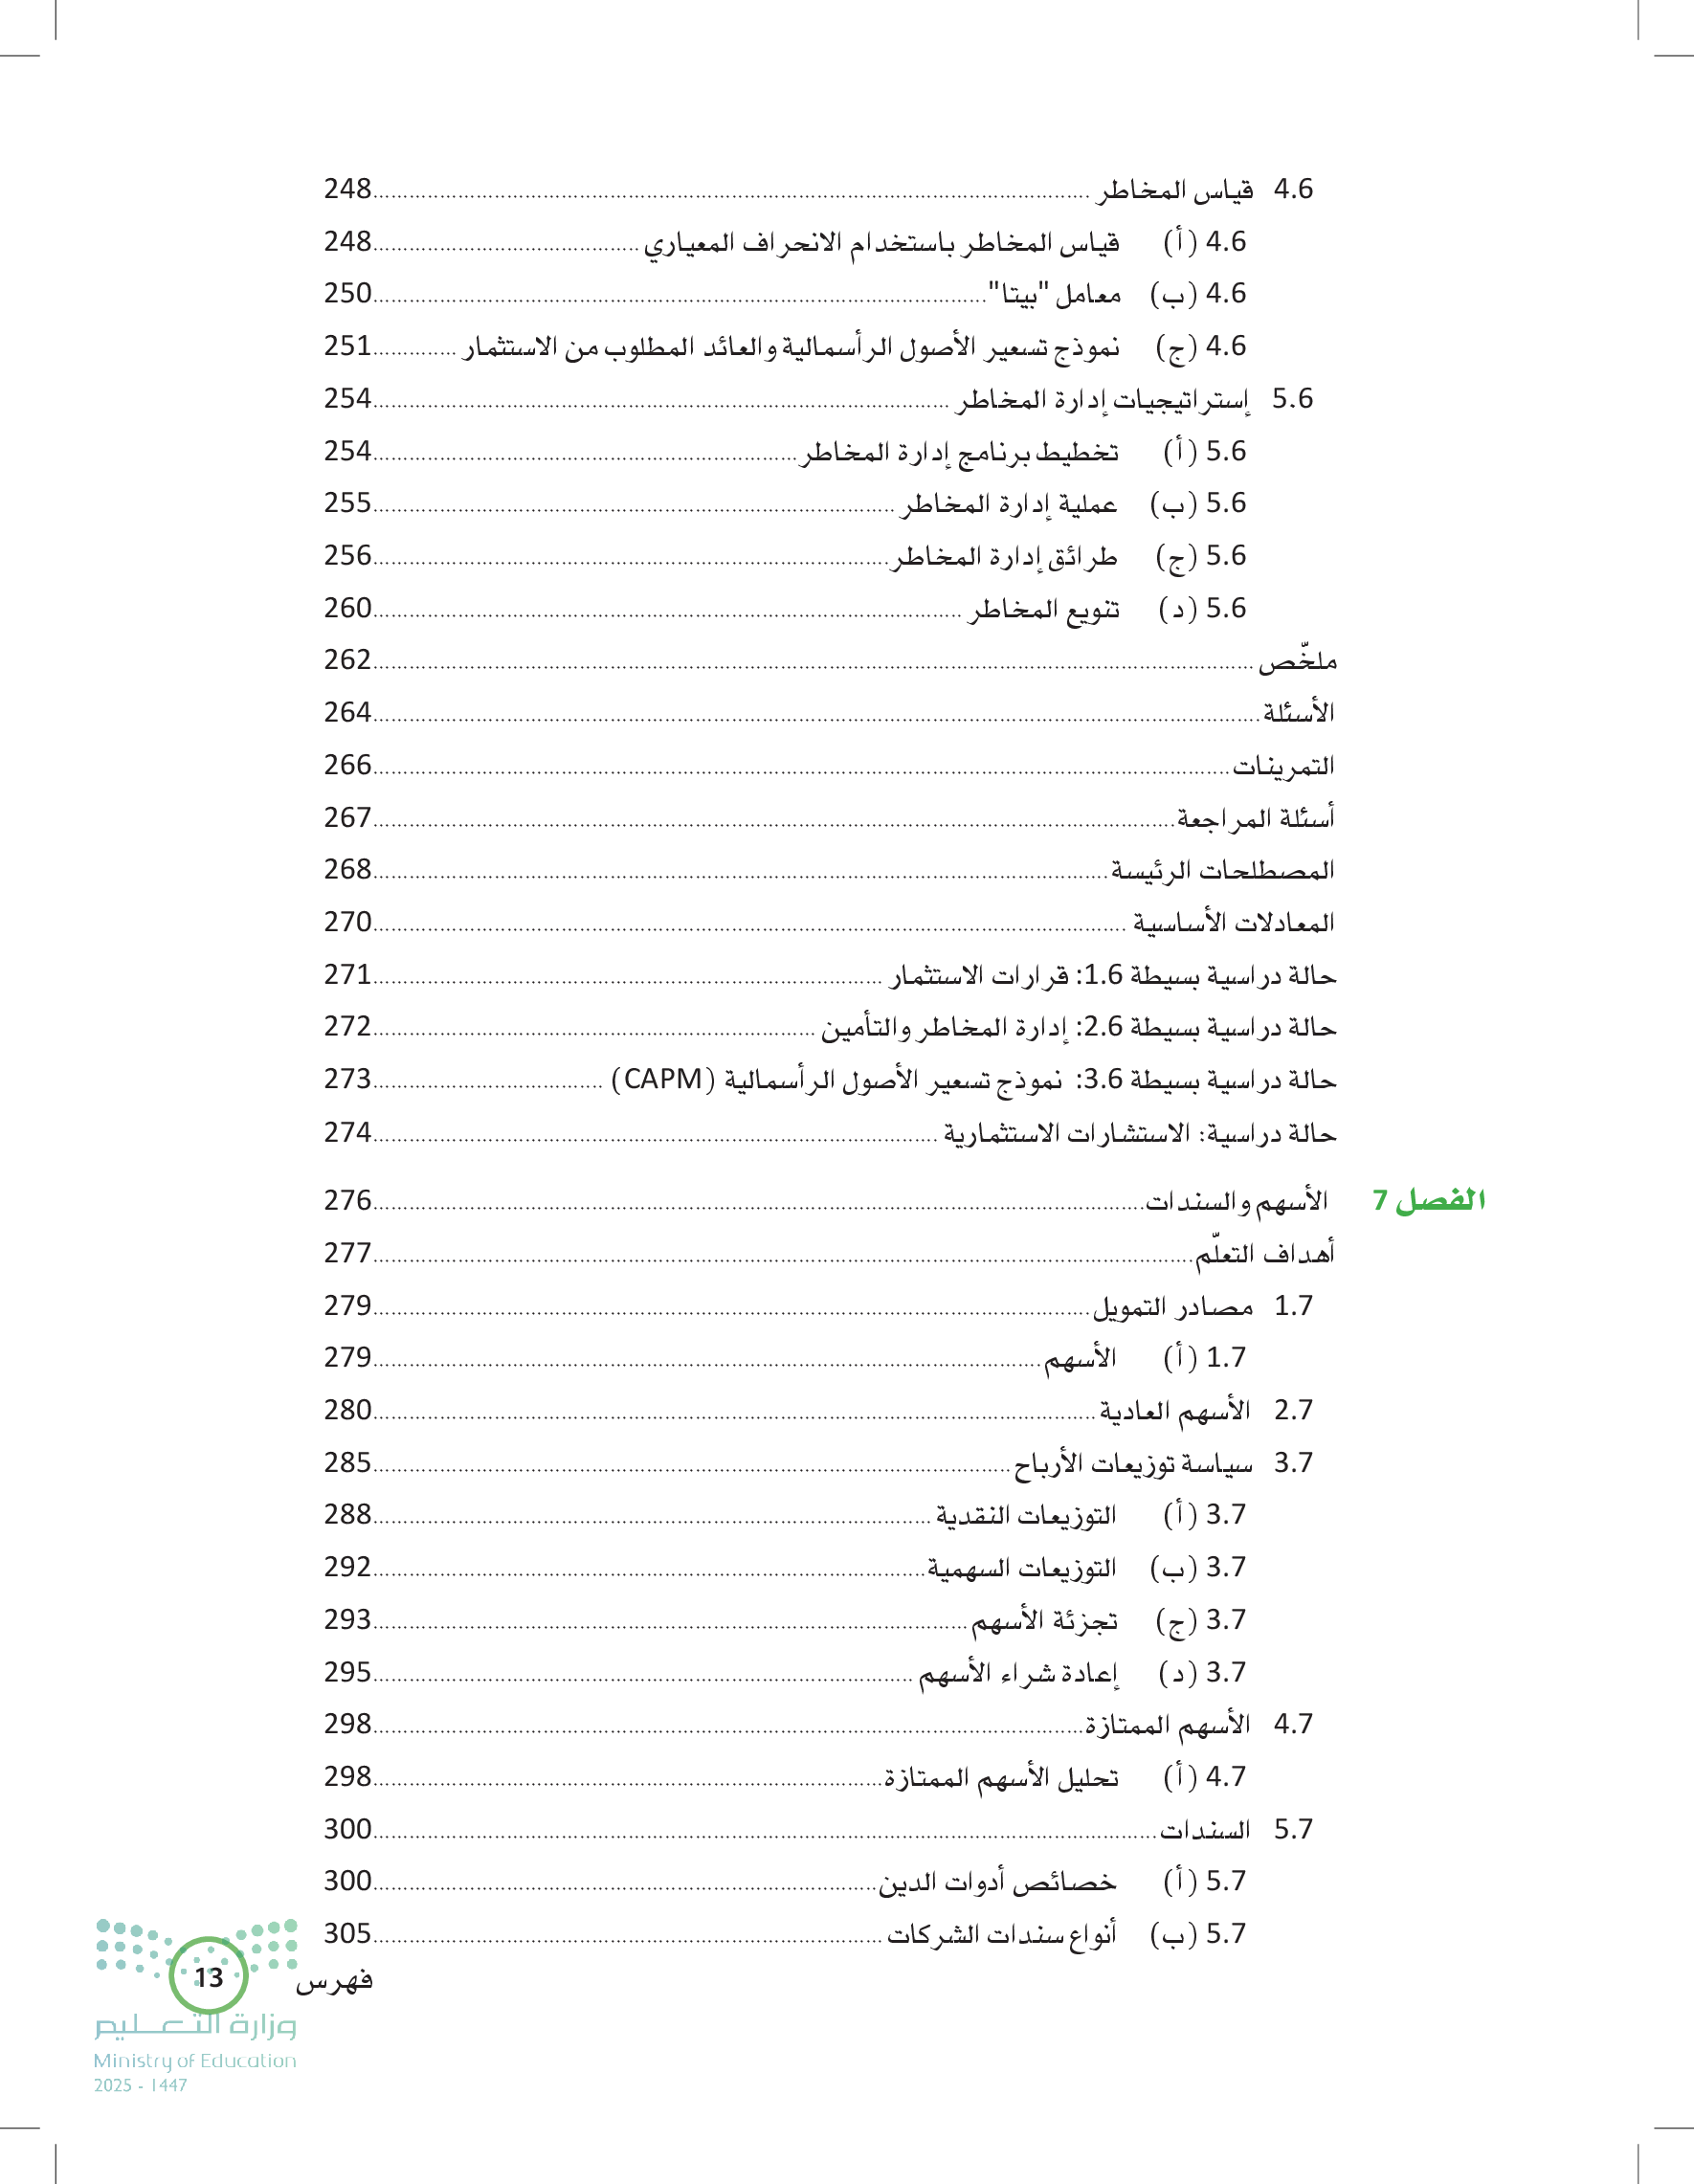 4.6 قياس المخاطر 248
4.6 (أ) قياس المخاطر باستخدام الانحراف المعياري 248
4.6 (ب) معامل "بيتا" 250
4.6 (ج) نموذج تسعير الأصول الرأسمالية والعائد المطلوب من الاستثمار 251
5.6 إستراتيجيات إدارة المخاطر 254
5.6 (أ) تخطيط برنامج إدارة المخاطر 254
5.6 (ب) عملية إدارة المخاطر 255
5.6 (ج) طرائق إدارة المخاطر 256
5.6 (د) تنويع المخاطر 260
ملخّص 262
الأسئلة 264
التمرينات 266
أسئلة المراجعة 267
المصطلحات الرئيسة 268
المعادلات الأساسية 270
حالة دراسية بسيطة 1.6: قرارات الاستثمار 271
حالة دراسية بسيطة 2.6: إدارة المخاطر والتأمين 272
حالة دراسية بسيطة 3.6: نموذج تسعير الأصول الرأسمالية (CAPM) 273
حالة دراسية: الاستشارات الاستثمارية 274
الفصل 7 الأسهم والسندات 276
أهداف التعلّم 277
1.7 مصادر التمويل 279
1.7 (أ) الأسهم 279
2.7 الأسهم العادية 280
3.7 سياسة توزيعات الأرباح 285
3.7 (أ) التوزيعات النقدية 288
3.7 (ب) التوزيعات السهمية 292
3.7 (ج) تجزئة الأسهم 293
3.7 (د) إعادة شراء الأسهم 295
4.7 الأسهم الممتازة 298
4.7 (أ) تحليل الأسهم الممتازة 298
5.7 السندات 300
5.7 (أ) خصائص أدوات الدين 300
5.7 (ب) أنواع سندات الشركات 305
فهرس 13
وزارة التعليم
Ministry of Education
2025 - 1447